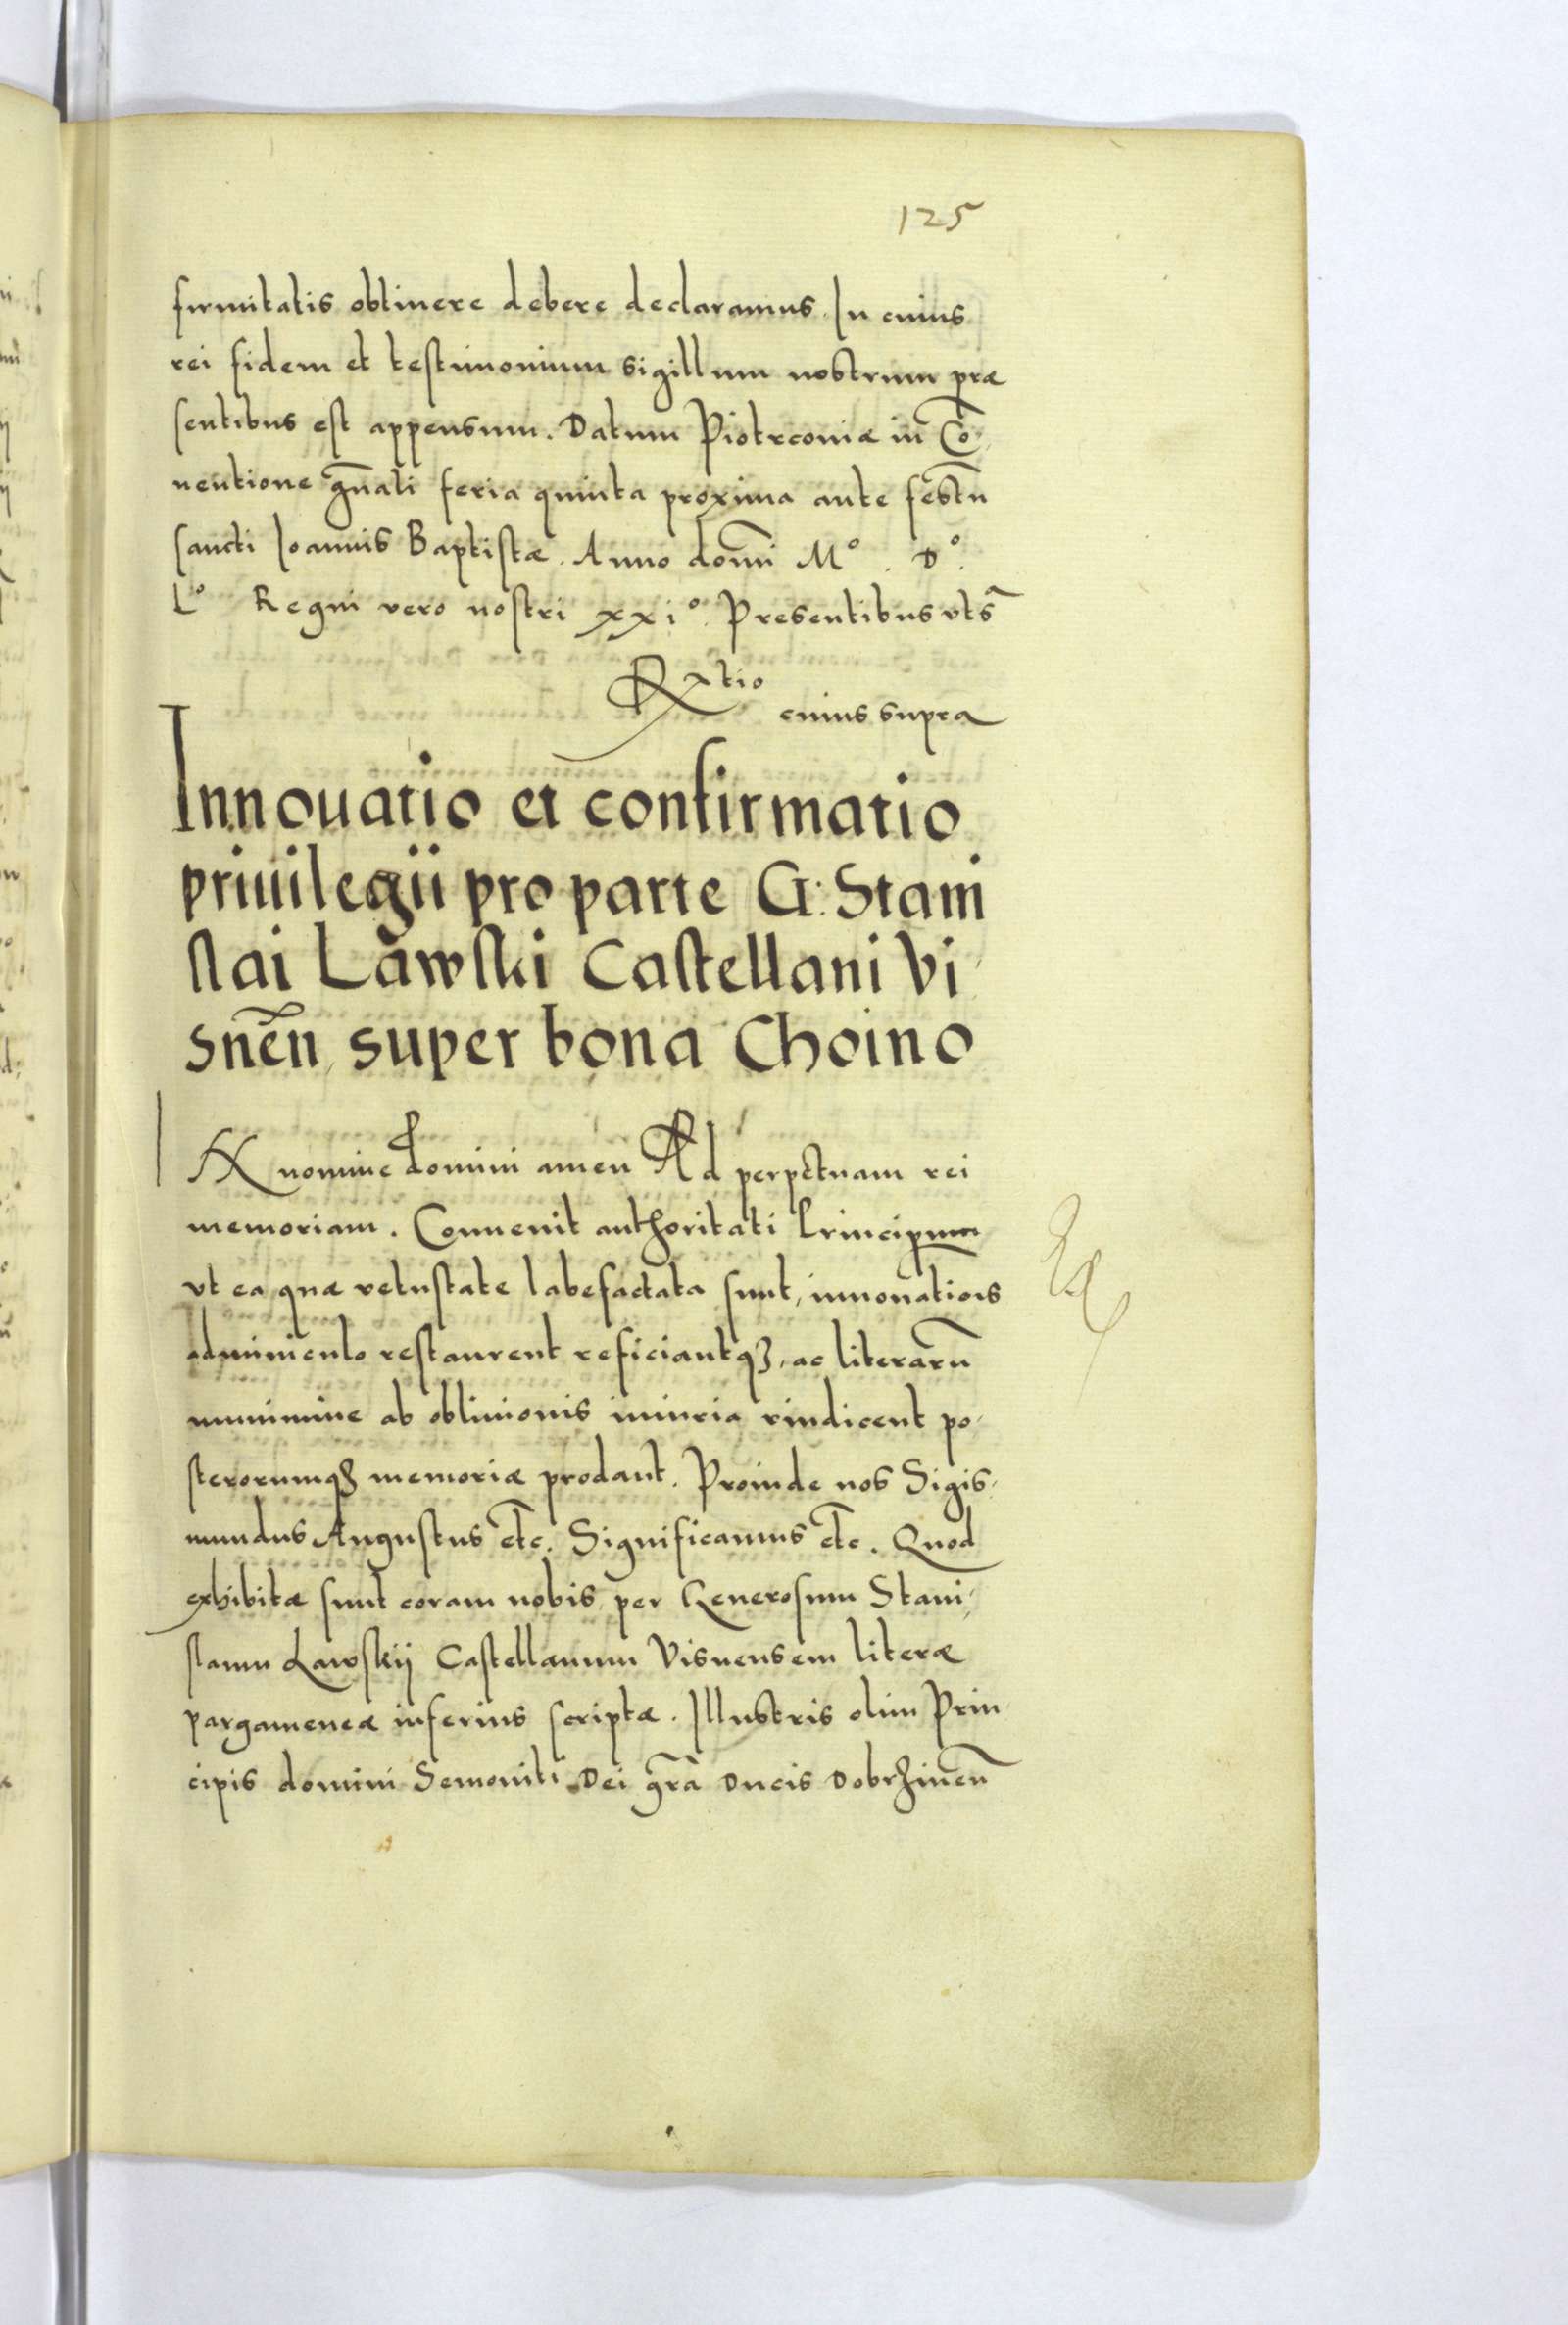 125
firmitatis obtinere debere declaramus. In cuius
rei fidem et testimonium sigillum nostrum præ
sentibus est appensum. Datum Piotrconiæ in Co͞
uentione gn͞ali feria quinta proxima ante festu͞
sancti Ioannis Baptistæ. Anno domi͞ Mº. Dº.
Lº Regni vero nostri xxiº. Presentibus vts͞
Rxtio
cuius supra
Innouatio et confirmatio
priuilegii pro parte G: Stani
slai Lawski Castellani Vi,
snen͞, super bona Choino
IN nomine domini amen Ad perpetuam rei
memoriam. Conuenit authoritati Principum
vt ea quæ vetustate labefactata sunt, innouatio͞is
adminiculo restaurent reficiantqꝫ, ac literaru͞
munimine ab obliuionis iniuria vindicent po,
sterorumqꝫ memoriæ prodant. Proinde nos Sigis,
mundus Augustus etc. Significamus etc. Quod
exhibitæ sunt coram nobis per Generosum Stani,
slaum Lawskij Castellanum Visnensem literæ
pargameneæ inferius scriptæ. Illustris olim Prin
cipis domini Semoviti Dei gr͞a Ducis Dobrzinen͞